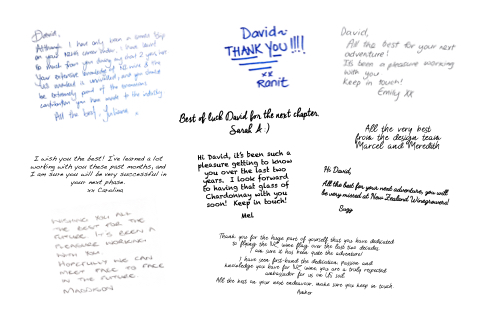 David,
Although I have only been a small blip
on your NZW career radar, I have learnt
so much from you during my short 2 years here.
Your extensive knowledge of NZ wine & the
US market is unrivalled, and you should
be extremely proud of the
contribution you have made to the industry
All the best,
David~
THANK YOU!!!!
xx
Ranit
David,
All the best for your next
adventure!
It's been a pleasure working
with you
Keep in touch!
Emily XX
Best of luck David for the next chapter.
Sarah A :)
All the very best
from the design team
Marcel and Meredith
I wish you the best! I've learned a lot
working with you these past months, and
I am sure you will be very successful in
your next phase.
xx Carolina
Hi David, it's been such a
pleasure getting to know
you over the last two
years. I look forward
to having that glass of
Chardonnay with you
soon! Keep in touch!
Mel
Hi David,
All the best for your next adventure, you will
be very missed at New Zealand Winegrowers!
Suzy
WISHING YOU ALL
THE BEST FOR THE
FUTURE. IT'S BEEN A
PLEASURE WORKING
WITH YOU.
HOPEFULLY WE CAN
MEET FACE TO FACE
IN THE FUTURE
MADDISON
Thank you for the huge part of yourself that you have dedicated
to flying the NZ wine flag over the last two decades,
I am sure it has been quite the adventure!
I have seen first-hand the dedication, passion and
knowledge you have for NZ wine, you are a truly respected
ambassador for us on US soil.
All the best on your next endeavour, make sure you keep in touch.
Amber